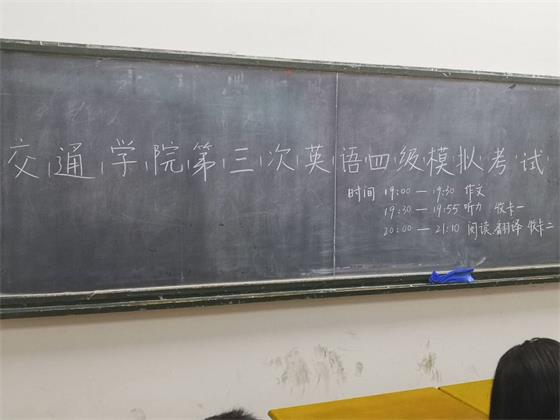 交通学院第三次英语四级模拟考试
时间 19:00—19:30 作文
19:30—19:55 听力 收卡一
20:00—21:10 阅读.翻译 收卡二